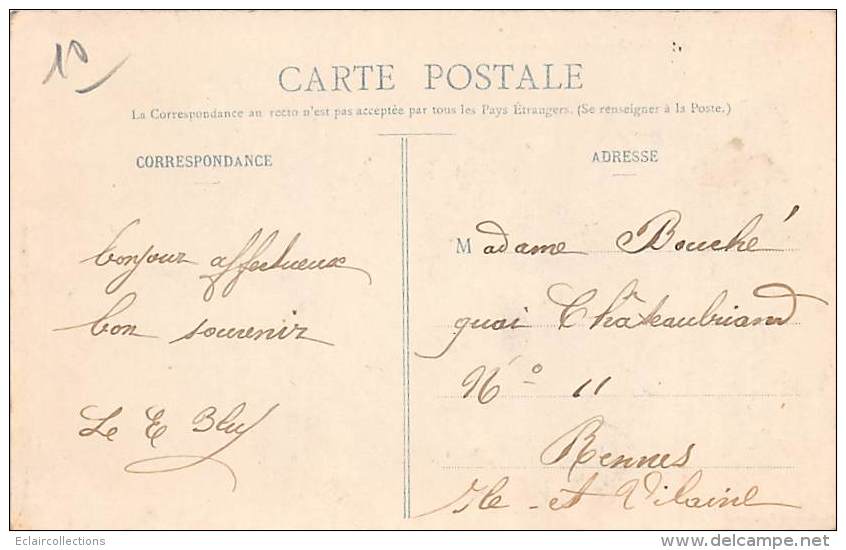 10
CARTE POSTALE
La Correspondance au recto n'est pas acceptée par tous les Pays Étrangers. (Se renseigner à la Poste.)
CORRESPONDANCE
bonjour affectueux
bon souvenir
Le E
ADRESSE
Madame Bouché
quai Châteaubriand
N° 11
Rennes
Ile-et Vilaine
Eclaircollections
www.delcampe.net